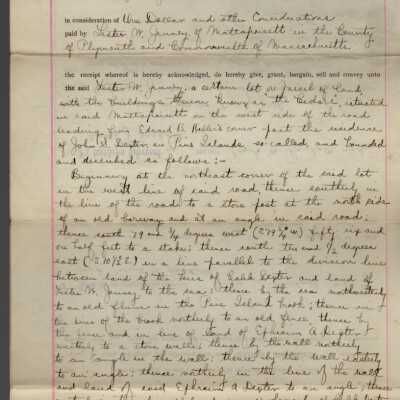 in consideration of One Dollar and other Considerations
paid by Lester W. Jenney of Mattapoisett in the County
of Plymouth and Commonwealth of Massachusetts
the receipt whereof is hereby acknowledged, do hereby give, grant, bargain, sell and convey unto
the said Lester W. Jenney, a certain lot or parcel of land
with the buildings thereon known as "the Cedars", situated
in said Mattapoisett on the west side of the road
leading from Edward B. corner past the residence
of John S. Dexter, on Pine Islands, so called, and bounded
and described as follows:-
Beginning at the northeast corner of the said lot
in the west line of said road, thence southerly in
the line of the road to a stone post at the north side
of an old barway and at an angle in said road;
thence south 79 and 3/4 degrees west fifty six and
one half feet to a stake; thence south ten and 1/2 degrees
east (S 10 1/2 E) in a line parallel to the division line
between land of the heirs of Caleb Dexter and land of
Lester W. Jenney to the sea; thence by the sea northwesterly
to an old flume in the Pine Island brook; thence in
the line of the brook northerly to an old fence; thence by
the fence and in line of land of Ephraim A. Dexter
westerly to a stone wall; thence by the wall northerly
to an angle in the wall; thence by the wall easterly
to an angle; thence northerly in the line of the wall
and land of said Ephraim A. Dexter to an angle; thence